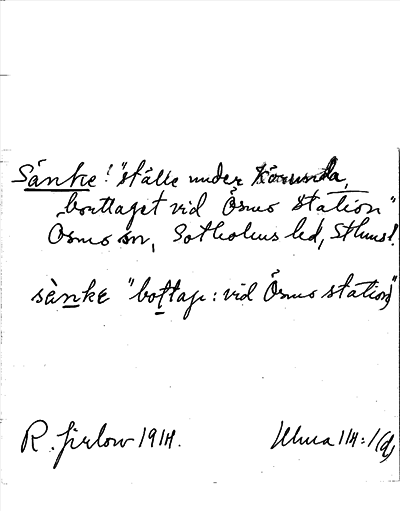 Sånke! "ställe under Körunda,
borttaget vid Ösmo station"
Ösmo sn, Sotholms hd, Sthms l.
sànke "bottage: vid Ösmo station"
R. Jirlow 1914.
Ulma 114:1(d)